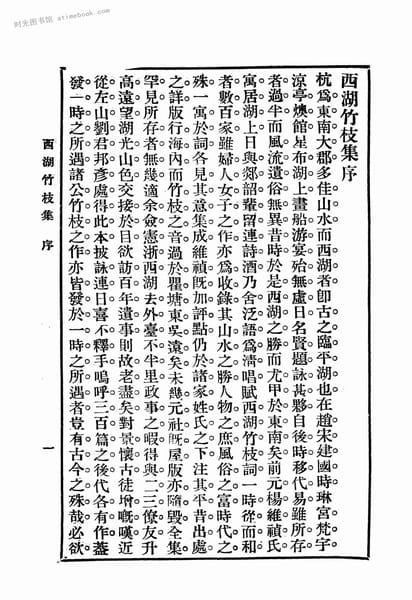 时光图书馆 atimebook.com
西湖竹枝集序
杭爲東南大郡多佳山水而西湖者卽古之臨平湖也在趙宋建國時琳宮梵宇
涼亭燠館星布湖上畫船游宴殆無虛日名賢題詠甚夥自後時移代易雖所存
者過半而風流遺俗無異昔時於是西湖之勝而尤甲於東南矣前元楊維禎氏
寓居湖上日與郯韶輩留連詩酒乃舍泛語爲淸唱賦西湖竹枝詞一時從而和
者數百家雖婦人女子之作亦爲收錄其山水之勝人物之庶風俗之富時代之
殊一寓於詞各見其意集成維禎旣加評點仍於諸家姓氏之下注其平昔出處
之詳版行海內而竹枝之音過於瞿塘東吳遠矣未幾元社旣屋版亦隨毀全集
罕見所存者無幾適余僉憲浙西湖去外臺不半里政事之暇得與二三僚友升
高遠望湖光山色交接於目欲訪百年遺事則故老盡矣對景懷古徒增嘅嘆近
從左山劉君邦彥處得此本披詠連日喜不釋手嗚呼三百篇之後代各有作蓋
發一時之所遇諸公竹枝之作亦皆發於一時之所遇者豈有古今之殊哉必欲
西湖竹枝集 序
一